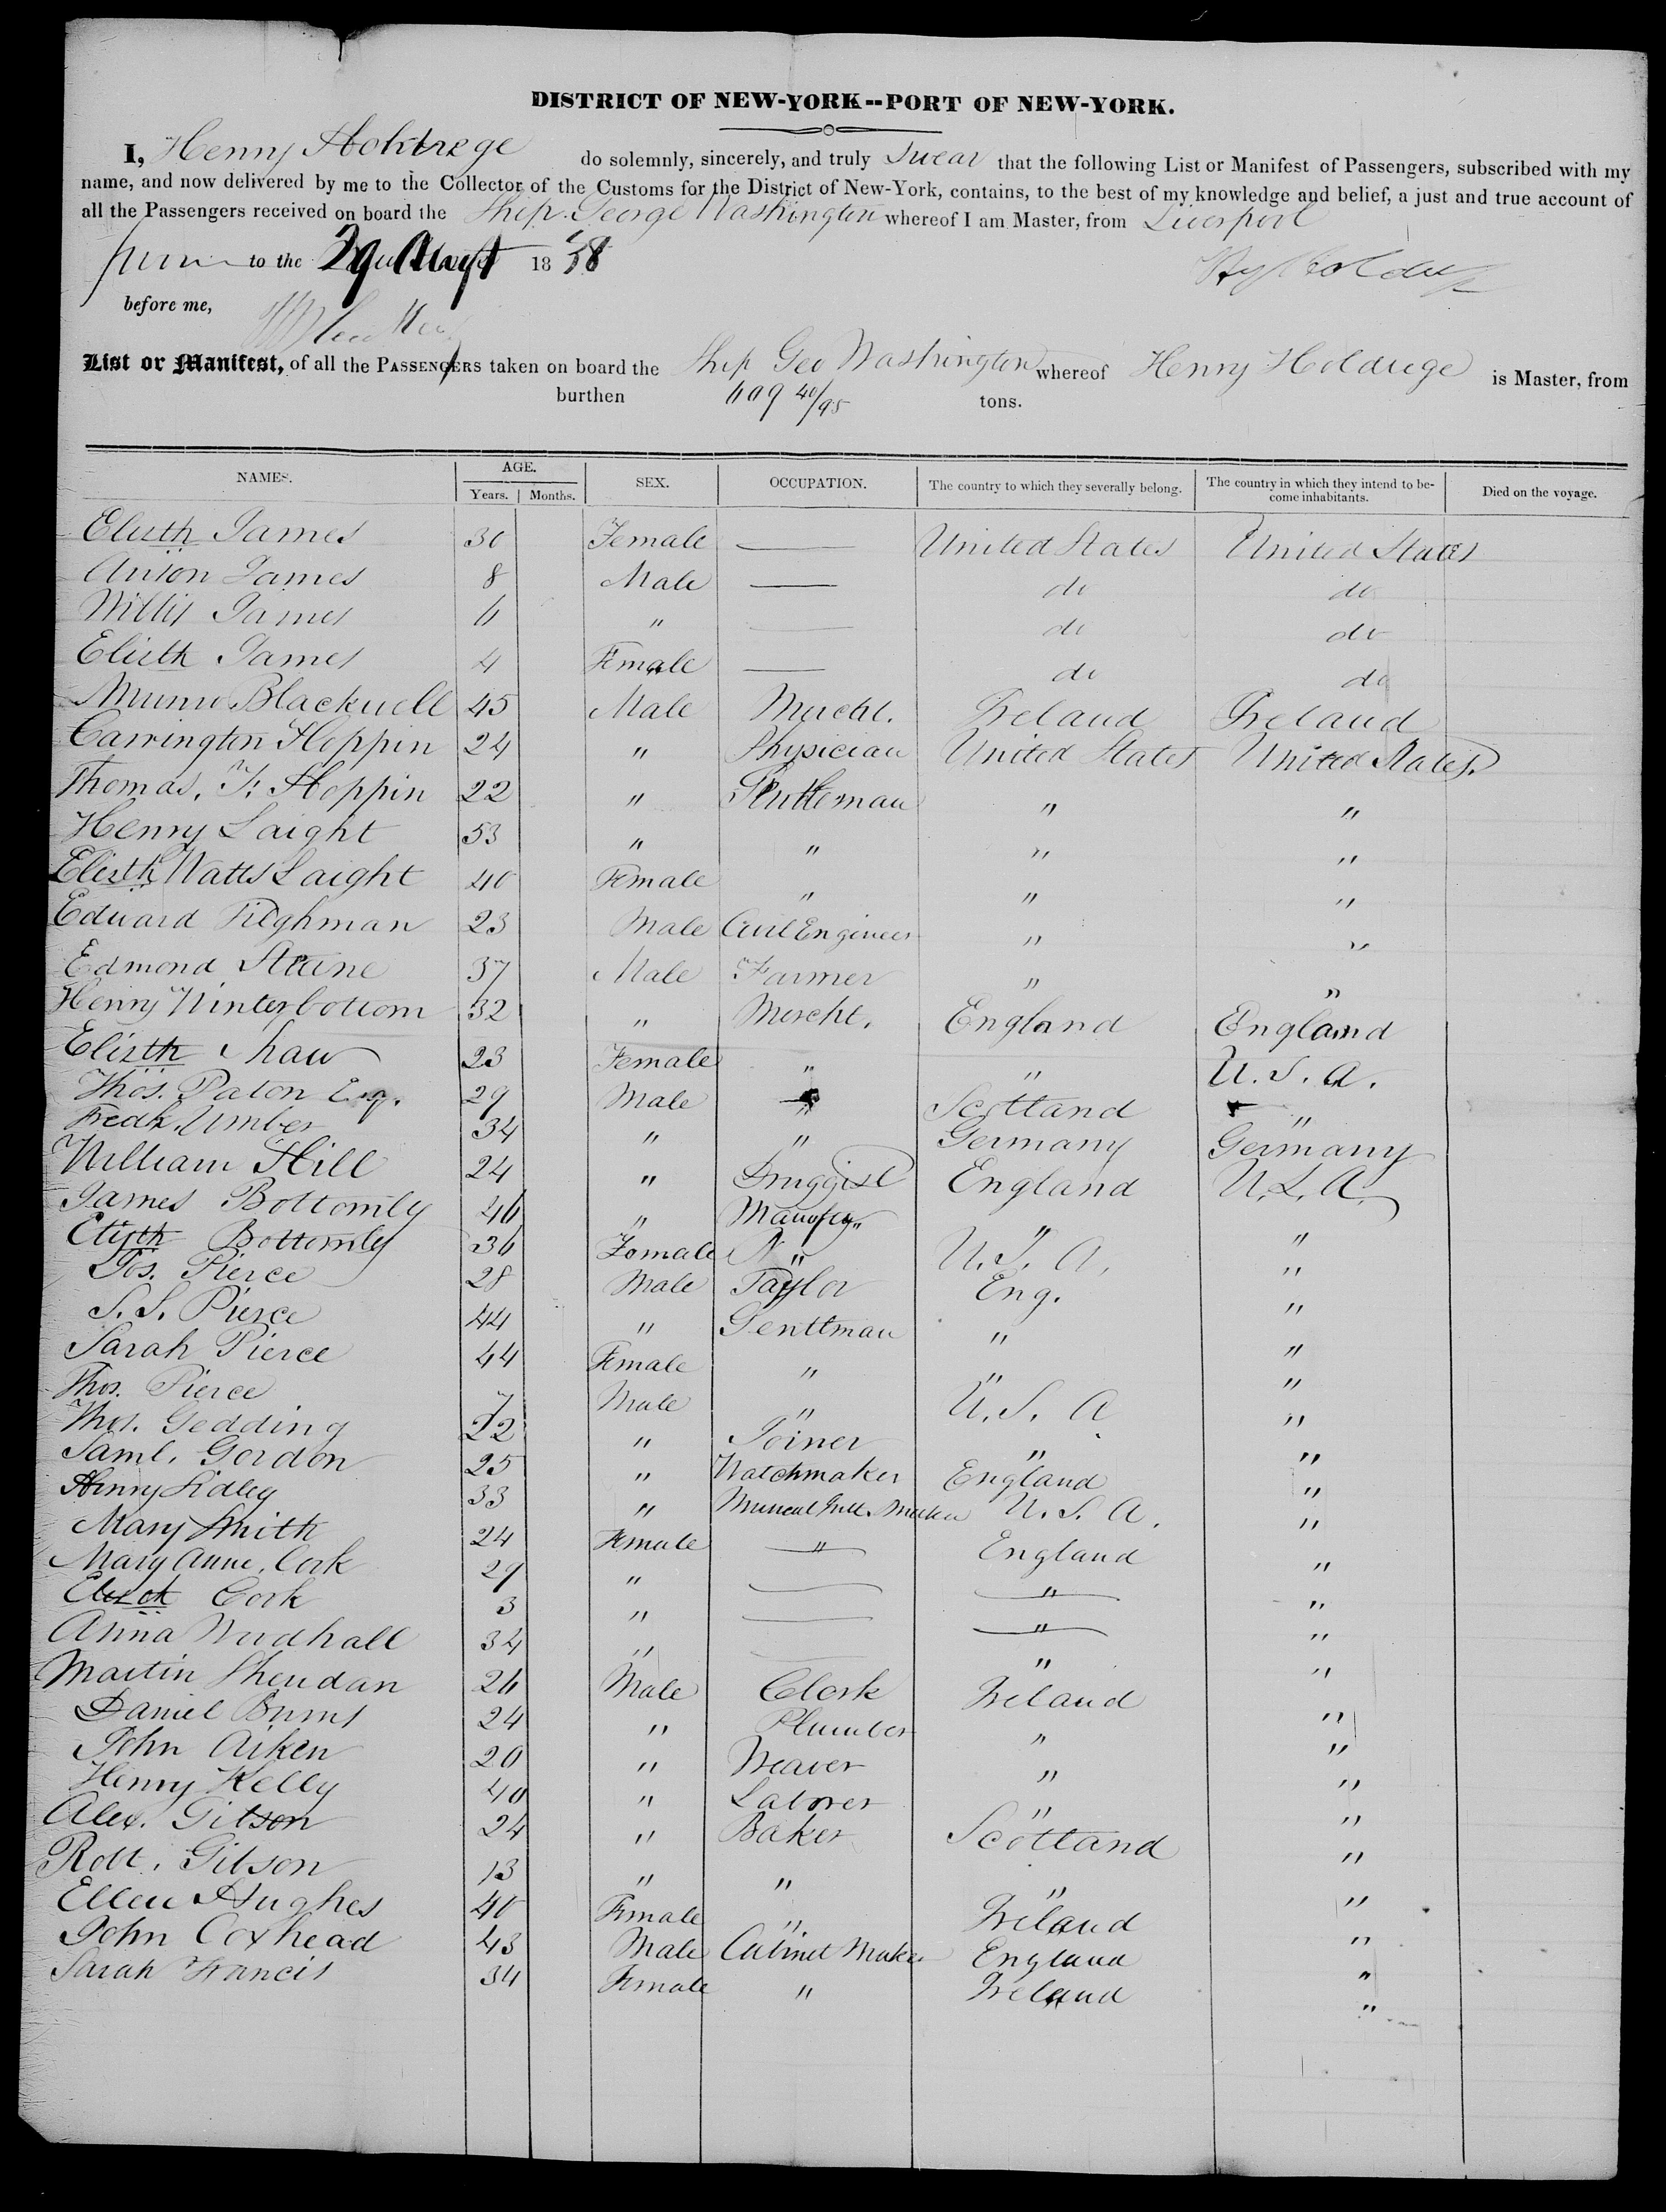 DISTRICT OF NEW-YORK--PORT OF NEW-YORK.
I, Henry Holdrege do solemnly, sincerely, and truly Swear that the following List or Manifest of Passengers, subscribed with my
name, and now delivered by me to the Collector of the Customs for the District of New-York, contains, to the best of my knowledge and belief, a just and true account of
all the Passengers received on board the Ship George Washington whereof I am Master, from Liverpool
to the 29 Augt 1838
before me,
List or Manifest, of all the PASSENGERS taken on board the Ship Geo Washington whereof Henry Holdrege is Master, from
burthen 609 40/95 tons.
NAMES. AGE. Years. Months. SEX. OCCUPATION. The country to which they severally belong. The country in which they intend to become inhabitants. Died on the voyage.
Elizth James 30 Female — United States United States
Anson James 8 Male — do do
Willis James 6 " — do do
Elizth James 4 Female — do do
Munro Blackwell 45 Male Mercht. Ireland Ireland
Carrington Hoppin 24 " Physician United States United States
Thomas. F. Hoppin 22 " Gentleman " "
Henry Laight 53 " " " "
Elizth Watts Laight 40 Female " " "
Edward Tilghman 23 Male Civil Engineer " "
Edmond 37 Male Farmer " "
Henry Winterbottom 32 " Mercht. England England
Elizth Shaw 23 Female " " U.S.A.
Thos. Paton Esq. 29 Male " Scotland "
Fredk. Umber 34 " " Germany Germany
William Hill 24 " Druggist England U.S.A.
James Bottomly 46 " " "
Elizth Bottomly 36 Female " U.S.A. "
Jos. Pierce 28 Male Taylor Eng. "
S. S. Pierce 44 " Gentlman " "
Sarah Pierce 44 Female " " "
Thos. Pierce 7 Male " U.S.A "
Thos. Gedding 22 " Joiner " "
Saml. Gordon 25 " Watchmaker England "
Henry Sidley 33 " Musical Inst. Maker U.S.A. "
Mary Smith 24 Female " England "
Mary Anne Cork 29 " — " "
Elizth Cork 3 " — " "
Anna Woodhall 34 " — " "
Martin Sheridan 26 Male Clerk Ireland "
Daniel Burns 24 " Plumber " "
John Aiken 20 " Weaver " "
Henry Kelly 40 " Laborer " "
Alex. Gibson 24 " Baker Scotland "
Robt. Gibson 13 " " " "
Ellen Hughes 40 Female " Ireland "
John Coxhead 43 Male Cabinet Maker England "
Sarah Francis 34 Female " Ireland "